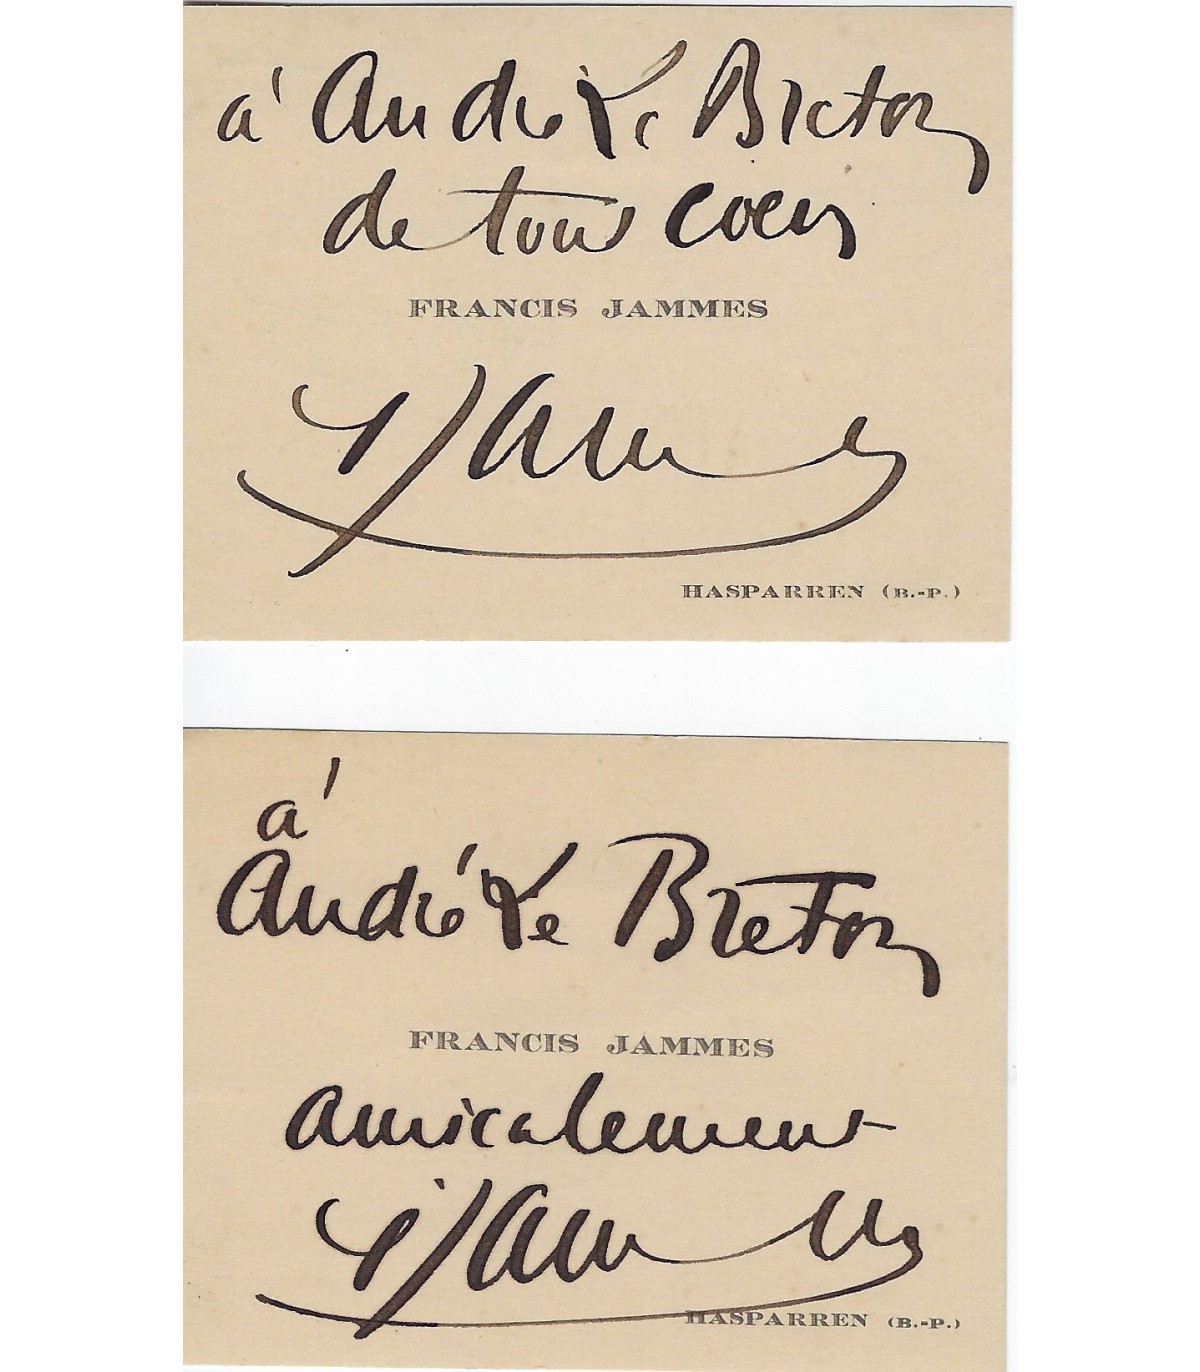 à André Le Breton
de tout coeur
FRANCIS JAMMES
F Jammes
HASPARREN (B.-P.)
à
André Le Breton
FRANCIS JAMMES
amicalement
F Jammes
HASPARREN (B.-P.)